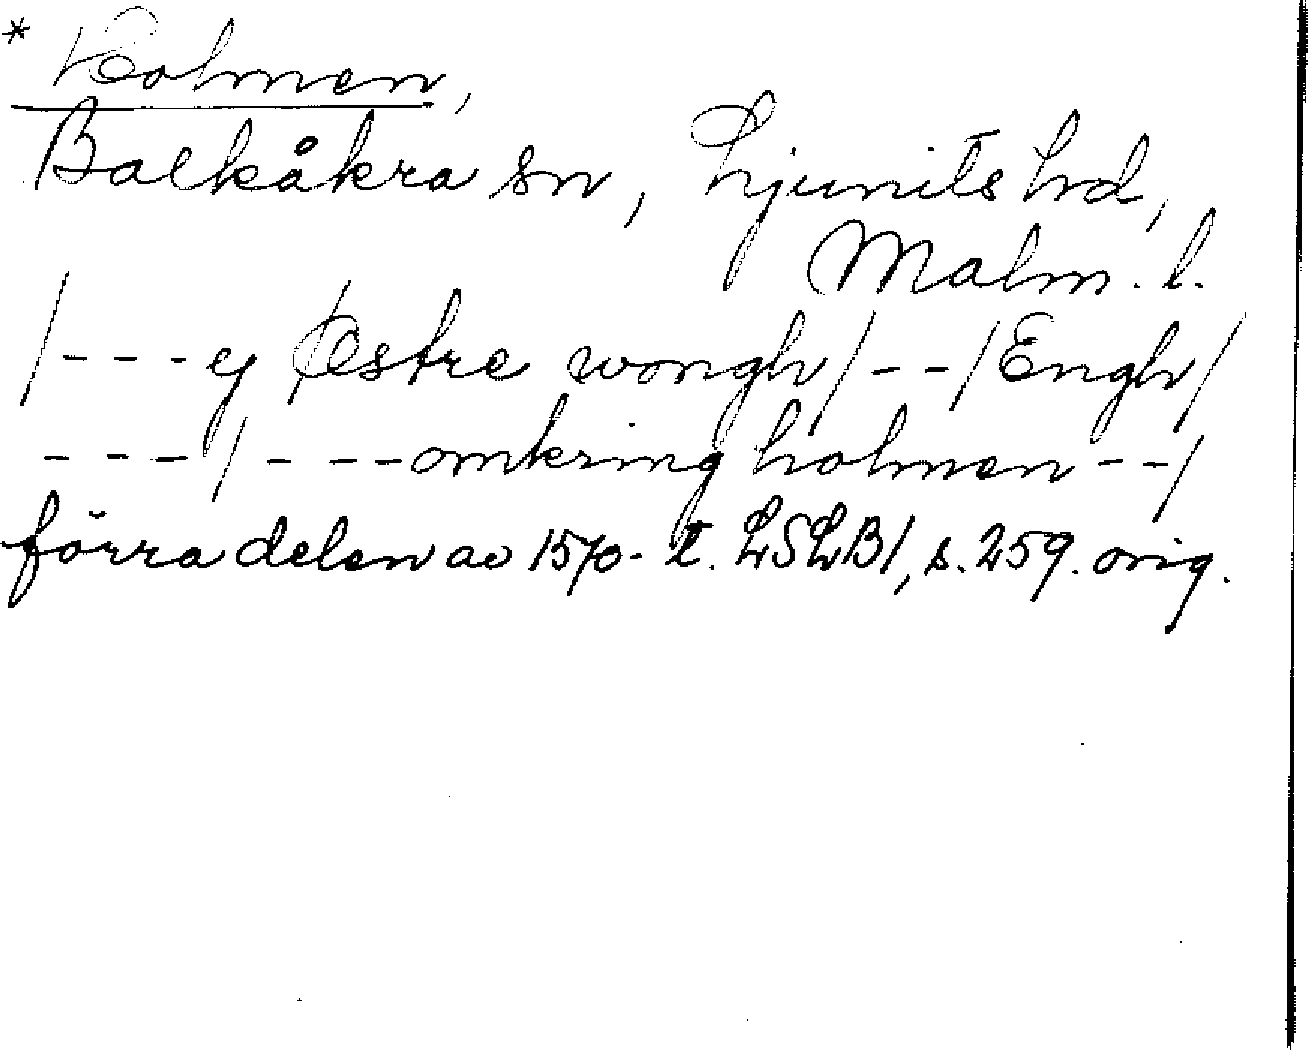 * Holmen,
Balkåkra sn, Ljunits hd,
Malm. l.
/---ej Østre wongh/--/Engh/
---/---omkring holmen--/
förra delen av 1570-t. LSLB1, s. 259. orig.